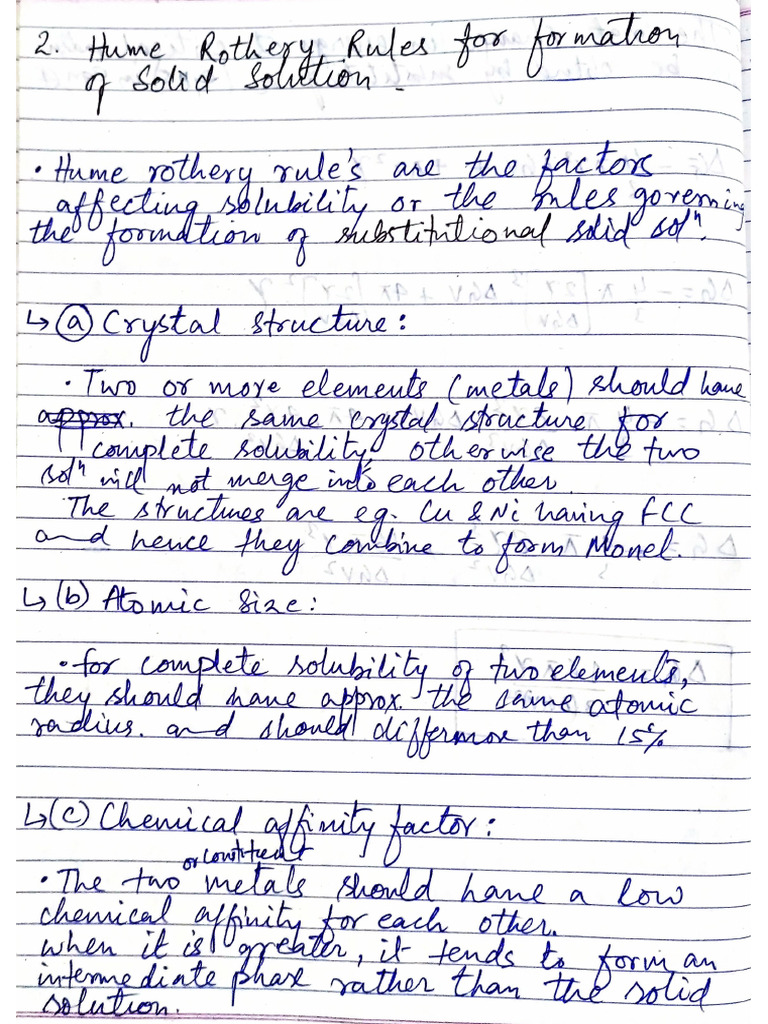 2. Hume Rothery Rules for formation
of Solid Solution.
• Hume rothery rule's are the factors
affecting solubility or the rules governing
the formation of substitutional solid solⁿ.
↳ (a) Crystal structure:
• Two or more elements (metals) should have
approx. the same crystal structure for
complete solubility, otherwise the two
solⁿ will not merge into each other.
The structures are eg. Cu & Ni having FCC
and hence they combine to form Monel.
↳ (b) Atomic Size:
• for complete solubility of two elements,
they should have approx. the same atomic
radius. and should differ more than 15%
↳ (c) Chemical affinity factor:
or constituent
• The two metals should have a low
chemical affinity for each other.
when it is greater, it tends to form an
intermediate phase rather than the solid
solution.